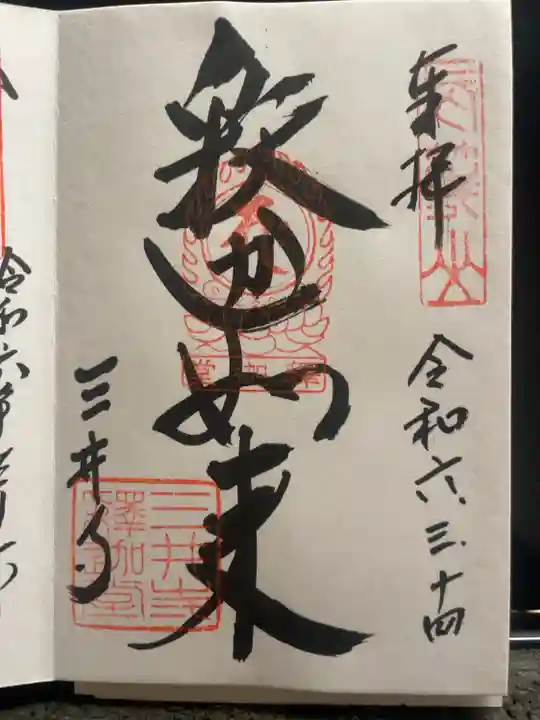 奉拝
長等山
令和六.三.十四
釈迦如来
釋迦堂
三井寺
三井寺
釋迦堂
令和六年